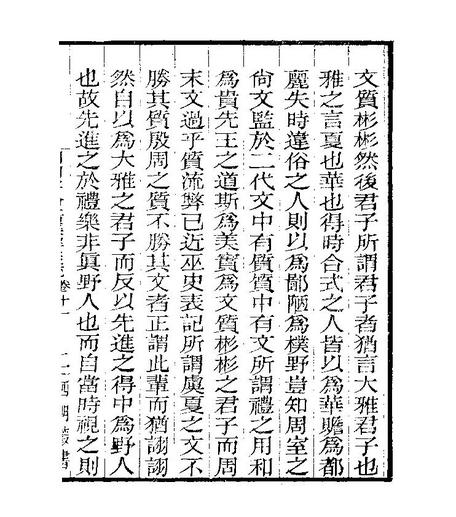 文質彬彬然後君子所謂君子者猶言大雅君子也
雅之言夏也華也得時合式之人皆以為華贍為都
麗失時違俗之人則以為鄙陋為樸野豈知周室之
尙文監於二代文中有質質中有文所謂禮之用和
為貴先王之道斯為美實為文質彬彬之君子而周
末文過乎質流弊已近巫史表記所謂虞夏之文不
勝其質殷周之質不勝其文者正謂此輩而猶詡詡
然自以為大雅之君子而反以先進之得中為野人
也故先進之於禮樂非眞野人也而自當時視之則
卷十一